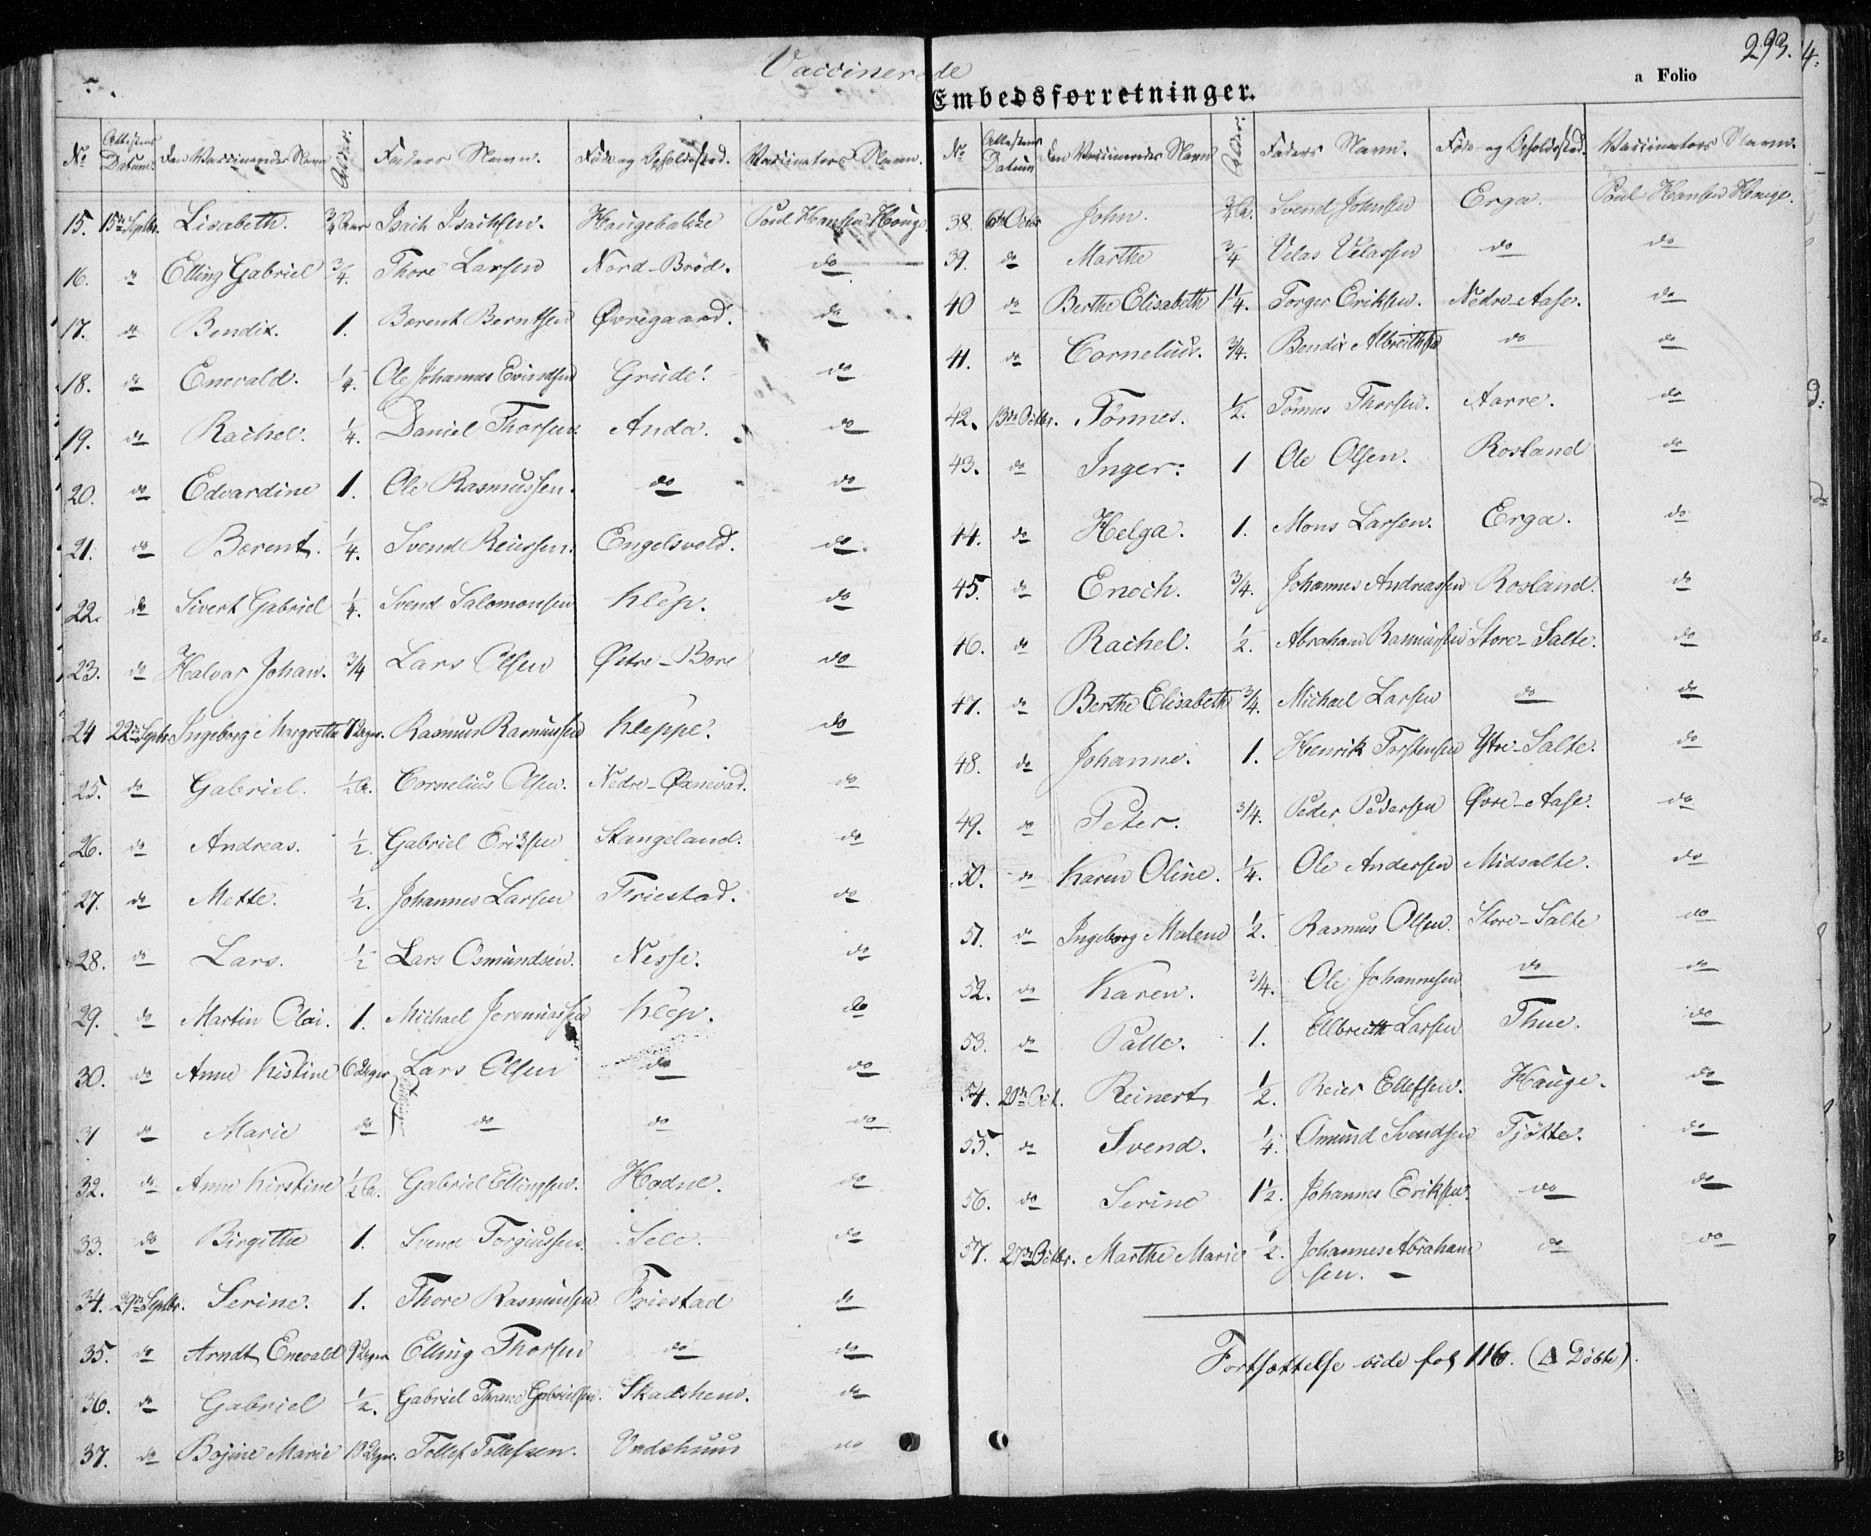 Vaccinerede
Embedsforretninger.
a Folio
293.
No Attestens Datum. Den Vaccineredes Navn Alder. Faders Navn. Føde og Opholdssted. Vaccinators Navn.
15. 15de Septbr. Lisabeth. 3/4 Aar Isach Isachsen. Haugebakke Poul Hansen Houge
16. do Elling Gabriel 3/4. Thore Larsen Nord-Bröd. do
17. do Bendix. 1. Berent Berntsen Øvregaard. do
18. do Enevald. 1/4. Ole Johannes Evindsen Grude. do
19. do Rachel. 1/4. Daniel Thorsen Anda. do
20. do Edvardine 1. Ole Rasmussen. do do
21. do Berent. 1/4. Svend Reiersen. Engelsvold. do.
22. do Sivert Gabriel 1/4. Svend Salomonsen Klep. do
23. do Halvar Johan. 3/4 Lars Olsen Østre-Bore do
24 22de Septbr Ingeborg Margrethe Uger. Rasmus Rasmussen Kleppe. do
25. do Gabriel. 1/2 A. Cornelius Olsen. Nedre-Øxnevad. do
26. do Andreas. 1/2. Gabriel Eriksen Stangeland. do
27. do Mette. 1/2. Johannes Larsen Friestad. do
28. do Lars. 1/2 Lars Osmundsen. Nesse. do
29. do Martin Olai. 1. Michael Jeremiassen Klep. do
30. do Anne Kistine 6 Uger Lars Olsen do do
31 do Marie do do do do
32. do Anne Kirstine 1/2 A. Gabriel Ellingsen. Hodne. do
33. do Birgithe 1. Svend Torgiussen. Sele. do
34. 29de Septbr. Serine. 1. Thore Rasmussen Friestad do
35. do Arndt Enevald 9 Uger Elling Thorsen do do
36. do Gabriel 1/2. Gabriel Thrane Gabrielsen. Skadshem. do
37. do Bojine Marie 10 Uger. Tollef Tollefsen. Vadshuus do
No Attestens Datum Den Vaccineredes Navn Alder. Faders Navn. Føde og Opholdssted. Vaccinators Navn.
38. 6te Octbr John. 3/4 A. Svend Johnsen Erga. Poul Hansen Hauge.
39. do Marthe 3/4 Velas Velassen do do
40 do Berthe Elisabeth 1 1/4. Torger Eriksen. Nedre-Aase. do
41. do Cornelius. 3/4. Bendix Albrethsen do do
42. 13de Octbr. Tönnes. 1/2. Tönnes Thorsen. Aarre. do
43. do Inger. 1 Ole Olsen. Rosland do
44. do Helga. 1. Mons Larsen. Erga. do
45. do Enoch. 3/4. Johannes Andreassen Rosland. do
46. do Rachel. 1/2. Abraham Rasmussen Store-Salte. do
47. do Berthe Elisabeth 3/4. Michael Larsen do do
48. do Johanne. 1. Henrik Torstensen Ytre-Salte. do
49. do Peter. 3/4. Peder Pedersen Øvre-Aase. do
50. do Karen Oline. 1/4. Ole Andersen Midsalte. do
51. do Ingeborg Malene 1/2. Rasmus Olsen. Store-Salte do
52. do Karen. 3/4. Ole Johannesen do do
53. do Palle. 1. Elbreth Larsen Thue. do
54. 20de Oct. Reinert 1/2. Reier Ellefsen. Hauge. do
55. do Svend. 1/4. Omund Svendsen Tjötte. do
56. do Serine 1 1/2. Johannes Eriksen. do do
57. 27de Octbr. Marthe Marie 1/2. Johannes Abraham do do
sen.
Fortsættelse vide fol 116. (A Döbte).